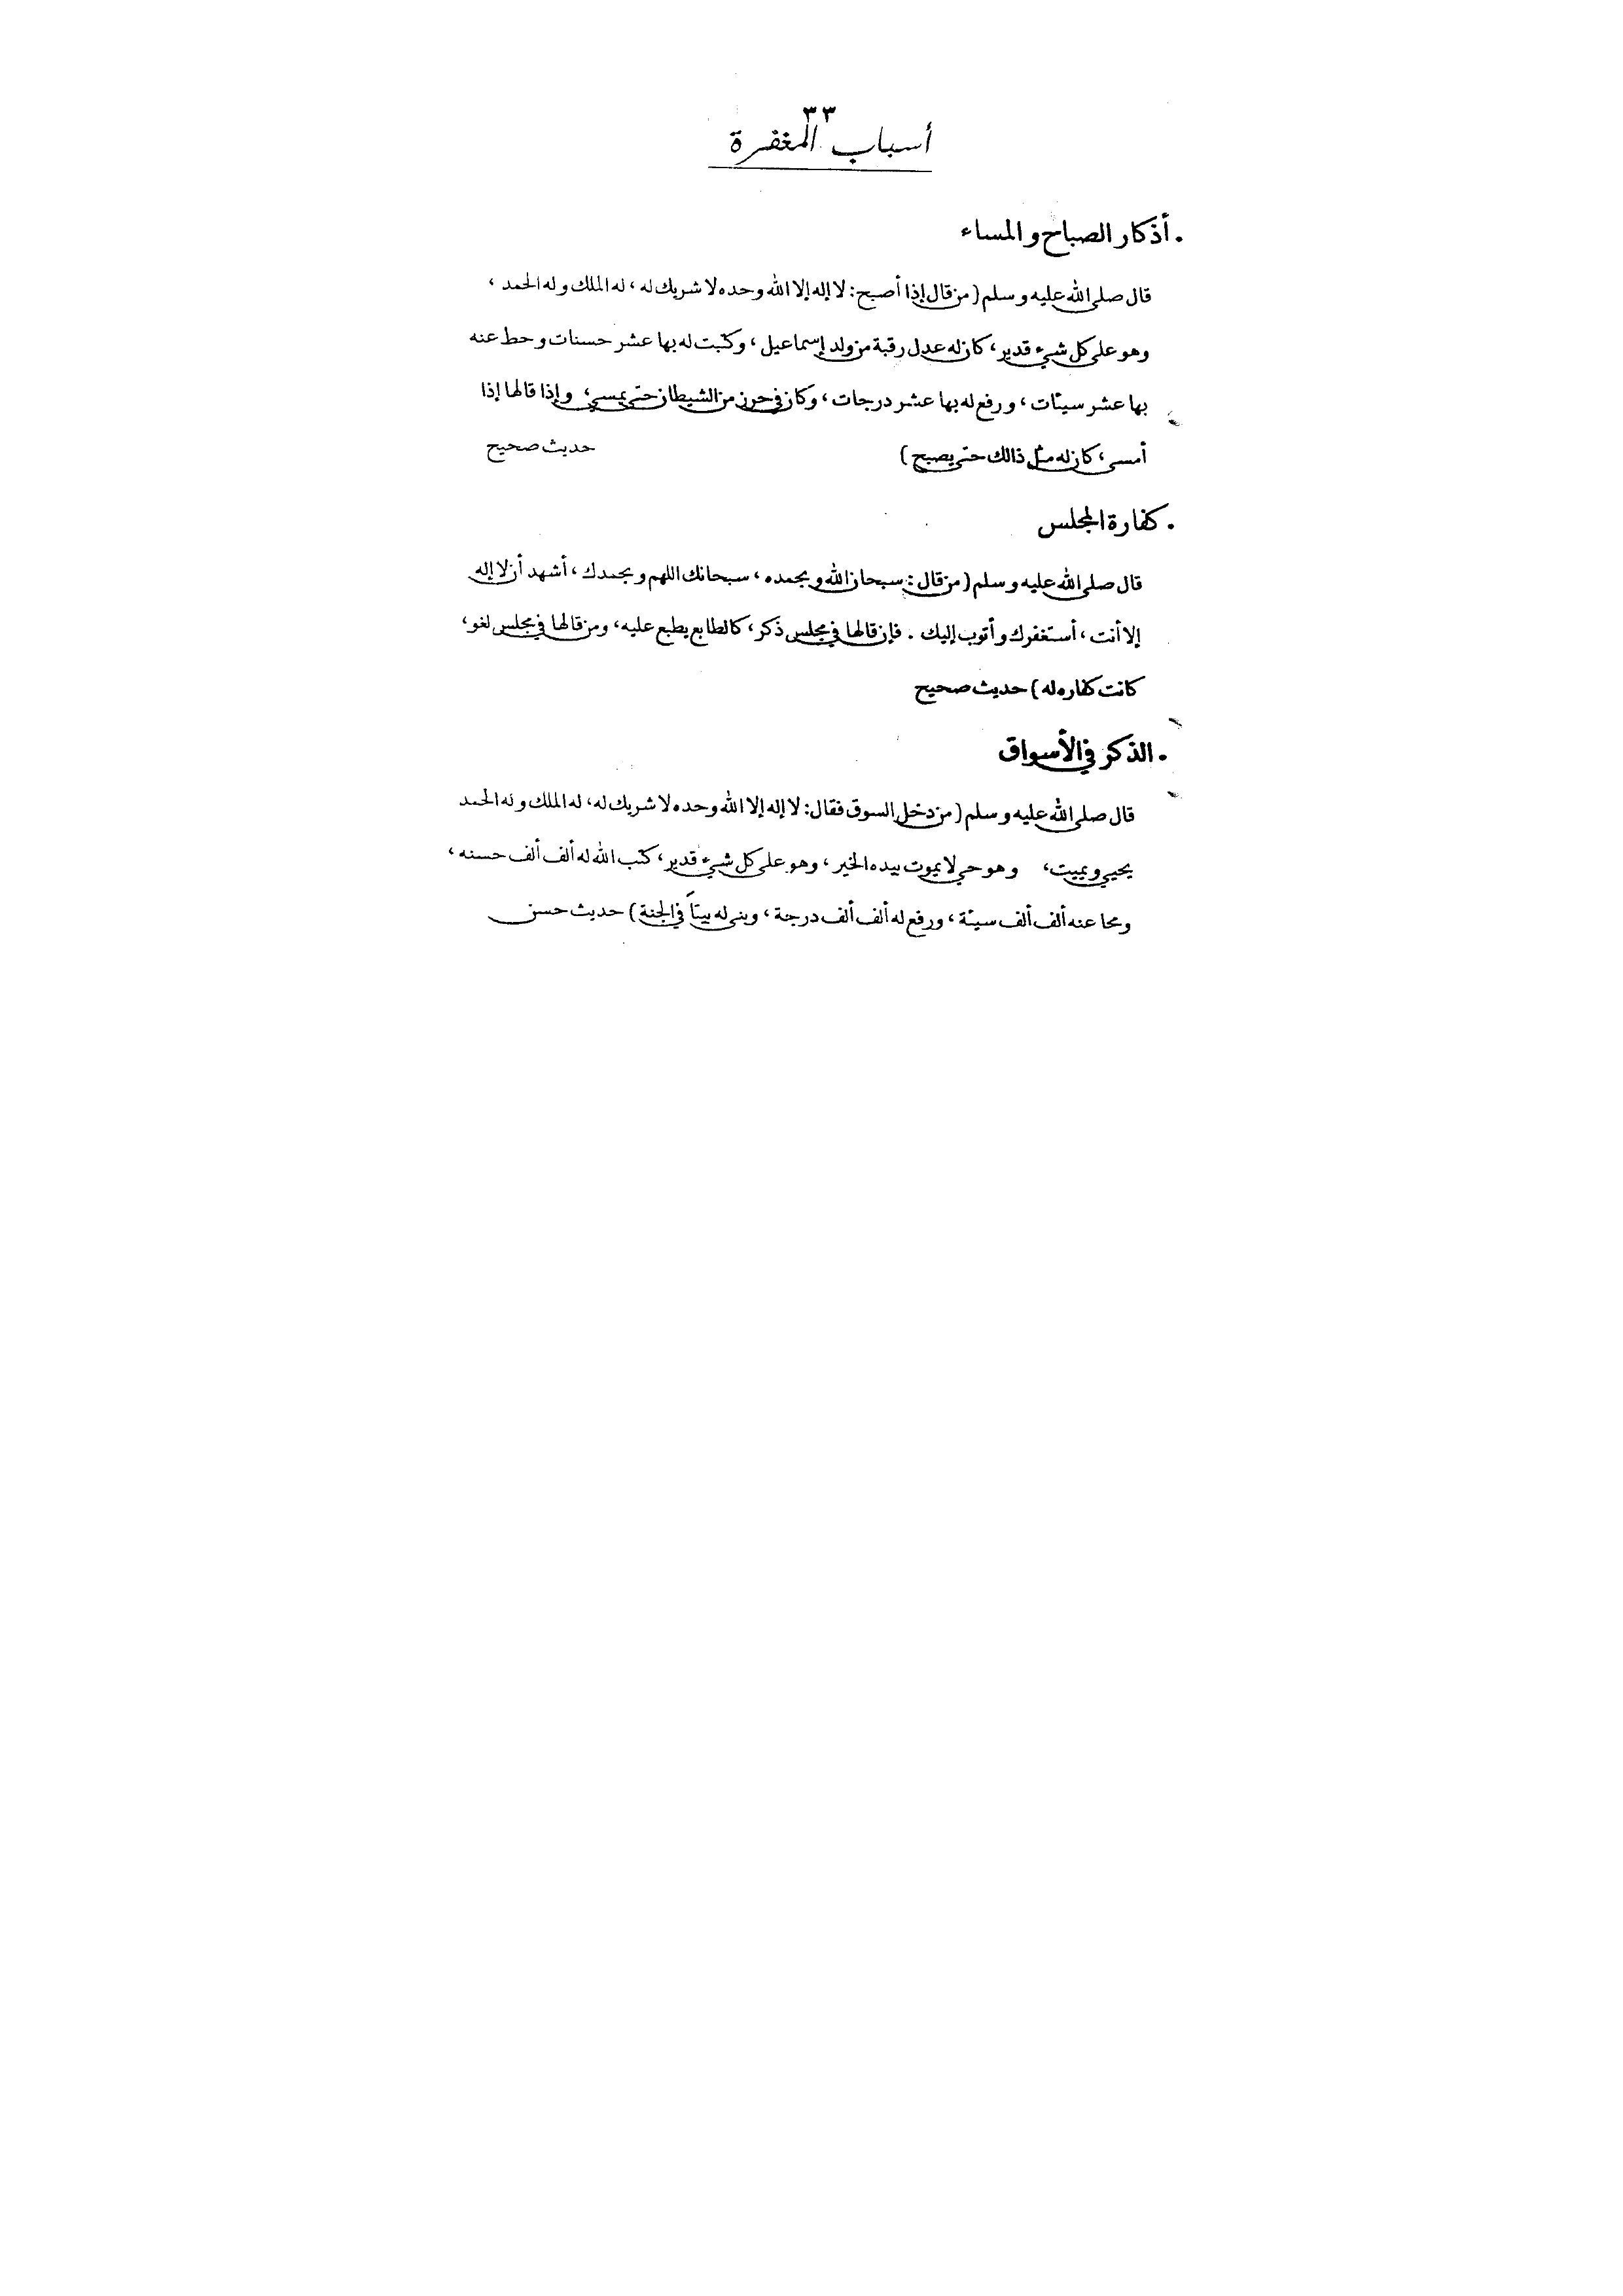 ٣٣
أسباب المغفرة
. أذكار الصباح والمساء
قال صلى الله عليه وسلم (من قال إذا أصبح: لا إله إلا الله وحده لا شريك له، له الملك وله الحمد،
وهو على كل شيء قدير، كان له عدل رقبة من ولد إسماعيل، وكتبت له بها عشر حسنات وحط عنه
بها عشر سيئات، ورفع له بها عشر درجات، وكان في حرز من الشيطان حتى يمسي، وإذا قالها إذا
أمسى، كان له مثل ذالك حتى يصبح) حديث صحيح
. كفارة المجلس
قال صلى الله عليه وسلم (من قال: سبحان الله وبحمده، سبحانك اللهم وبحمدك، أشهد أن لا إله
إلا أنت، أستغفرك وأتوب إليك . فإن قالها في مجلس ذكر، كالطابع يطبع عليه، ومن قالها في مجلس لغو،
كانت كفاره له) حديث صحيح
. الذكر في الأسواق
قال صلى الله عليه وسلم (من دخل السوق فقال: لا إله إلا الله وحده لا شريك له، له الملك وله الحمد
يحيي ويميت، وهو حي لا يموت بيده الخير، وهو على كل شيء قدير، كتب الله له ألف ألف حسنه،
ومحا عنه ألف ألف سيئة، ورفع له ألف ألف درجة، وبنى له بيتاً في الجنة) حديث حسن